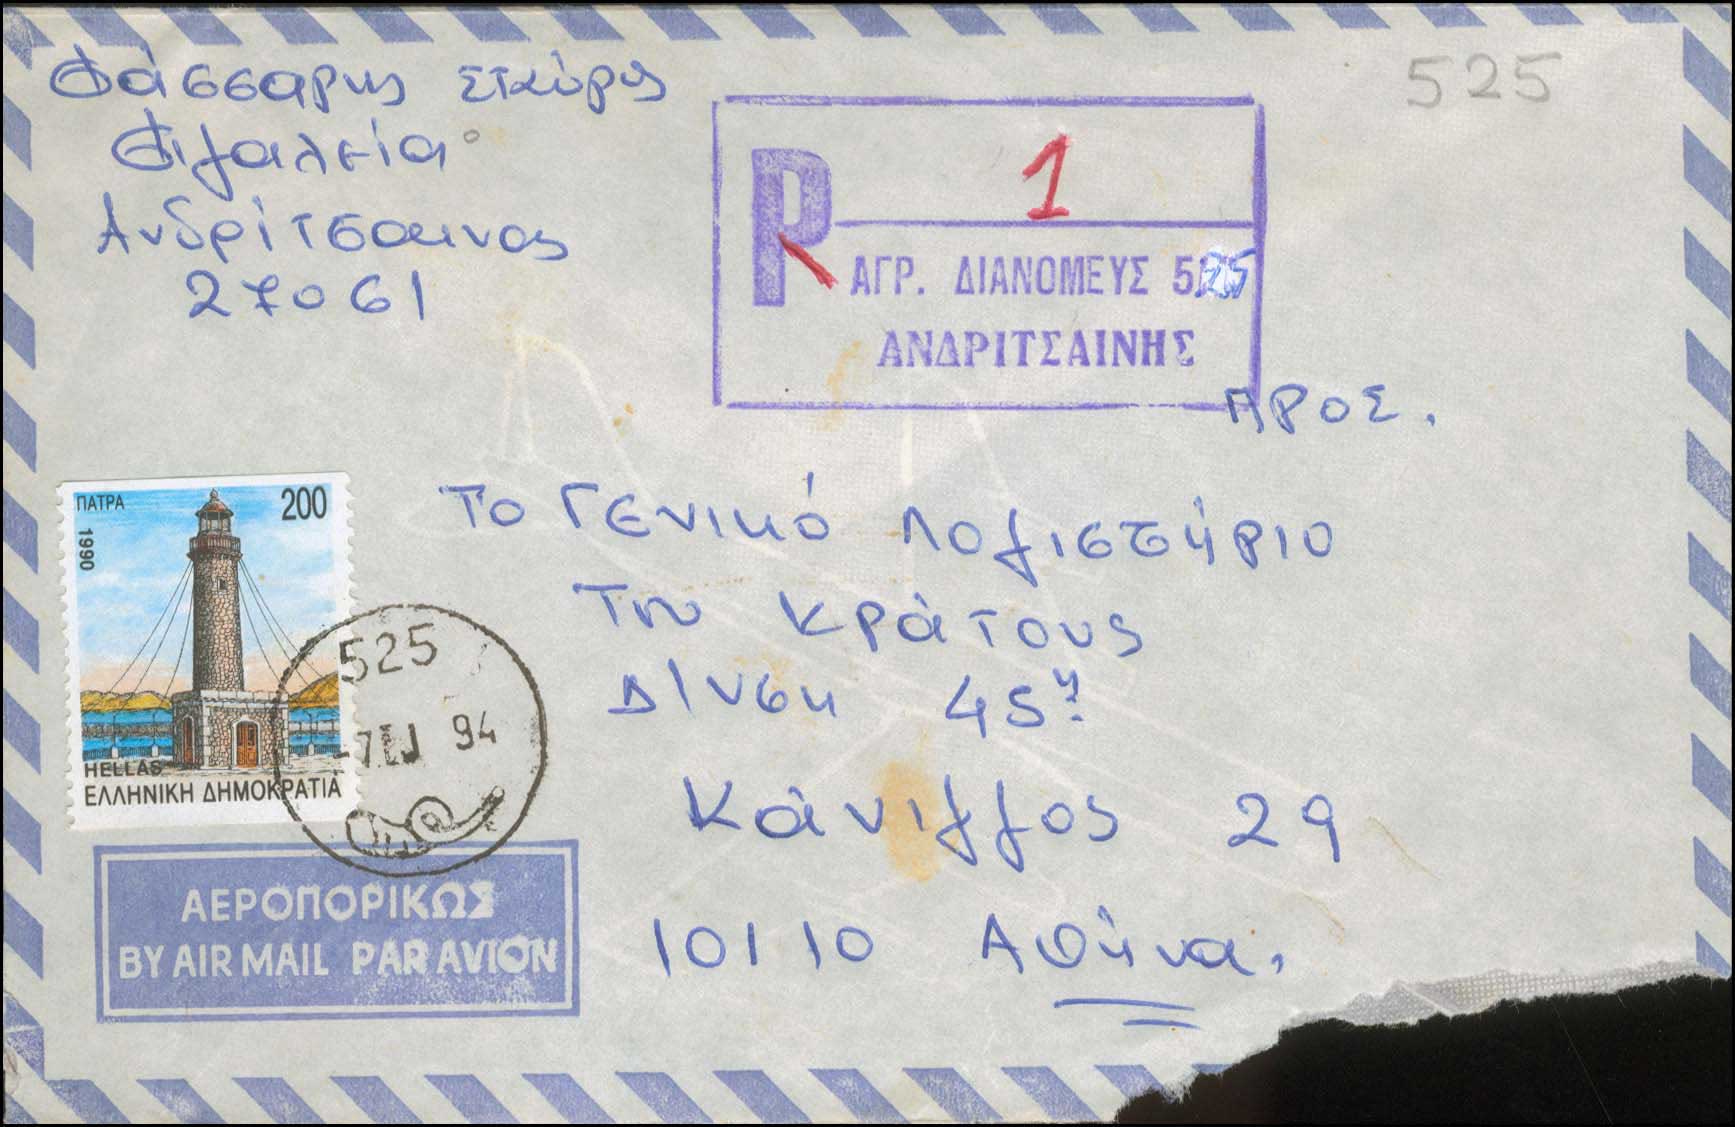 Φάσσαρης Σπύρος
Φιγαλεία
Ανδρίτσαινας
27061
525
R 1
ΑΓΡ. ΔΙΑΝΟΜΕΥΣ 525
ΑΝΔΡΙΤΣΑΙΝΗΣ
ΠΡΟΣ.
Το Γενικό Λογιστήριο
Του Κράτους
Δ/νση 45η
Κάνιγγος 29
10110 Αθήνα.
ΠΑΤΡΑ 200
1990
HELLAS
ΕΛΛΗΝΙΚΗ ΔΗΜΟΚΡΑΤΙΑ
525
94
ΑΕΡΟΠΟΡΙΚΩΣ
BY AIR MAIL PAR AVION